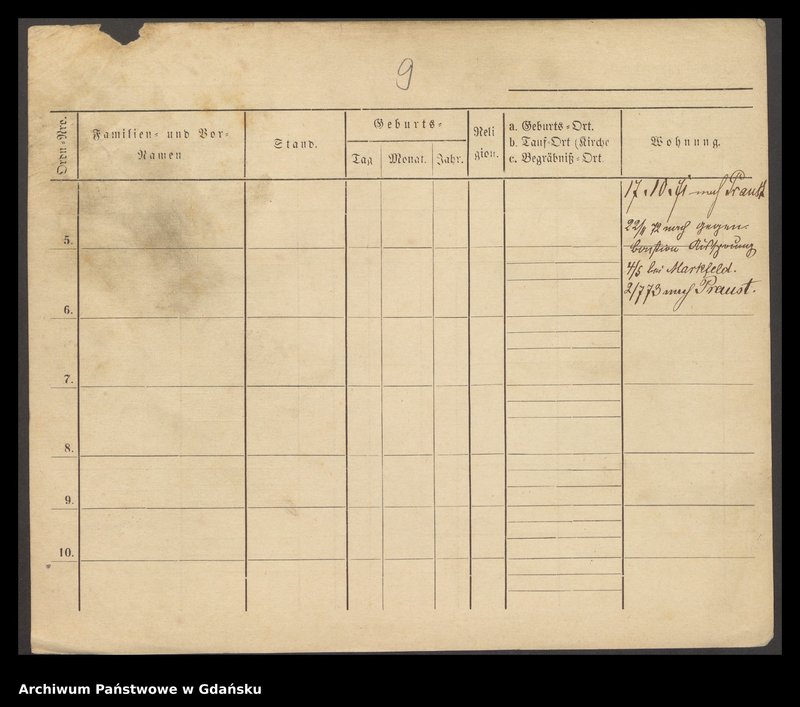 9
Ordn-Nro.
Familien- und Vor-
Namen
Stand.
Geburts-
Tag
Monat.
Jahr.
Reli
gion.
a. Geburts-Ort.
b. Tauf-Ort (Kirche
c. Begräbniß-Ort
Wohnung.
17.10.71 nach Praust
22/4 72 nach Gegen-
bastion Aussprung
4/5 bei Markfeld.
2/7 73 nach Praust.
5.
6.
7.
8.
9.
10.
Archiwum Państwowe w Gdańsku